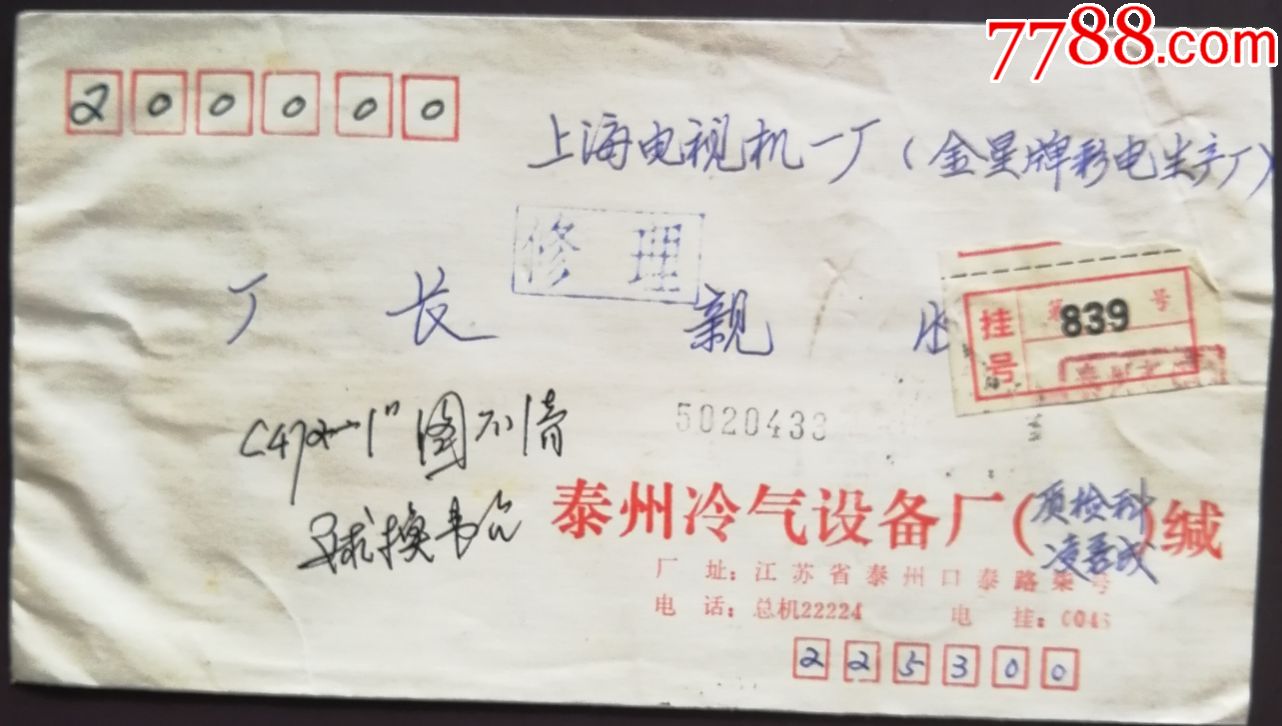 7788.com
200000
上海电视机一厂(金星牌彩电生产厂)
修 理
厂 长 亲
挂号 第 839 号
泰州
C472—1" 图不清
5020433
要求换
泰州冷气设备厂(质检科 凌 成)缄
厂 址:江苏省泰州口泰路柒号
电 话:总机22224 电 挂:0046
225300